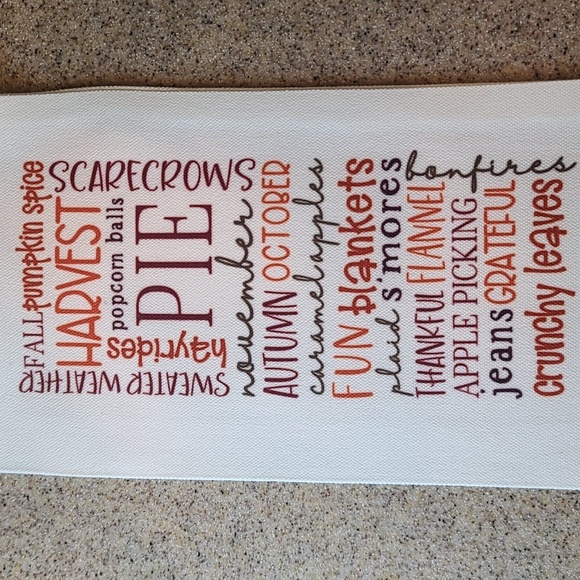 FALL pumpkin spice
HARVEST
SWEATER WEATHER
hayrides
popcorn balls
PIE
SCARECROWS
november
AUTUMN OCTOBER
caramel apples
FUN blankets
plaid s'mores
THANKFUL FLANNEL
APPLE PICKING
jeans GRATEFUL
bonfires
crunchy leaves